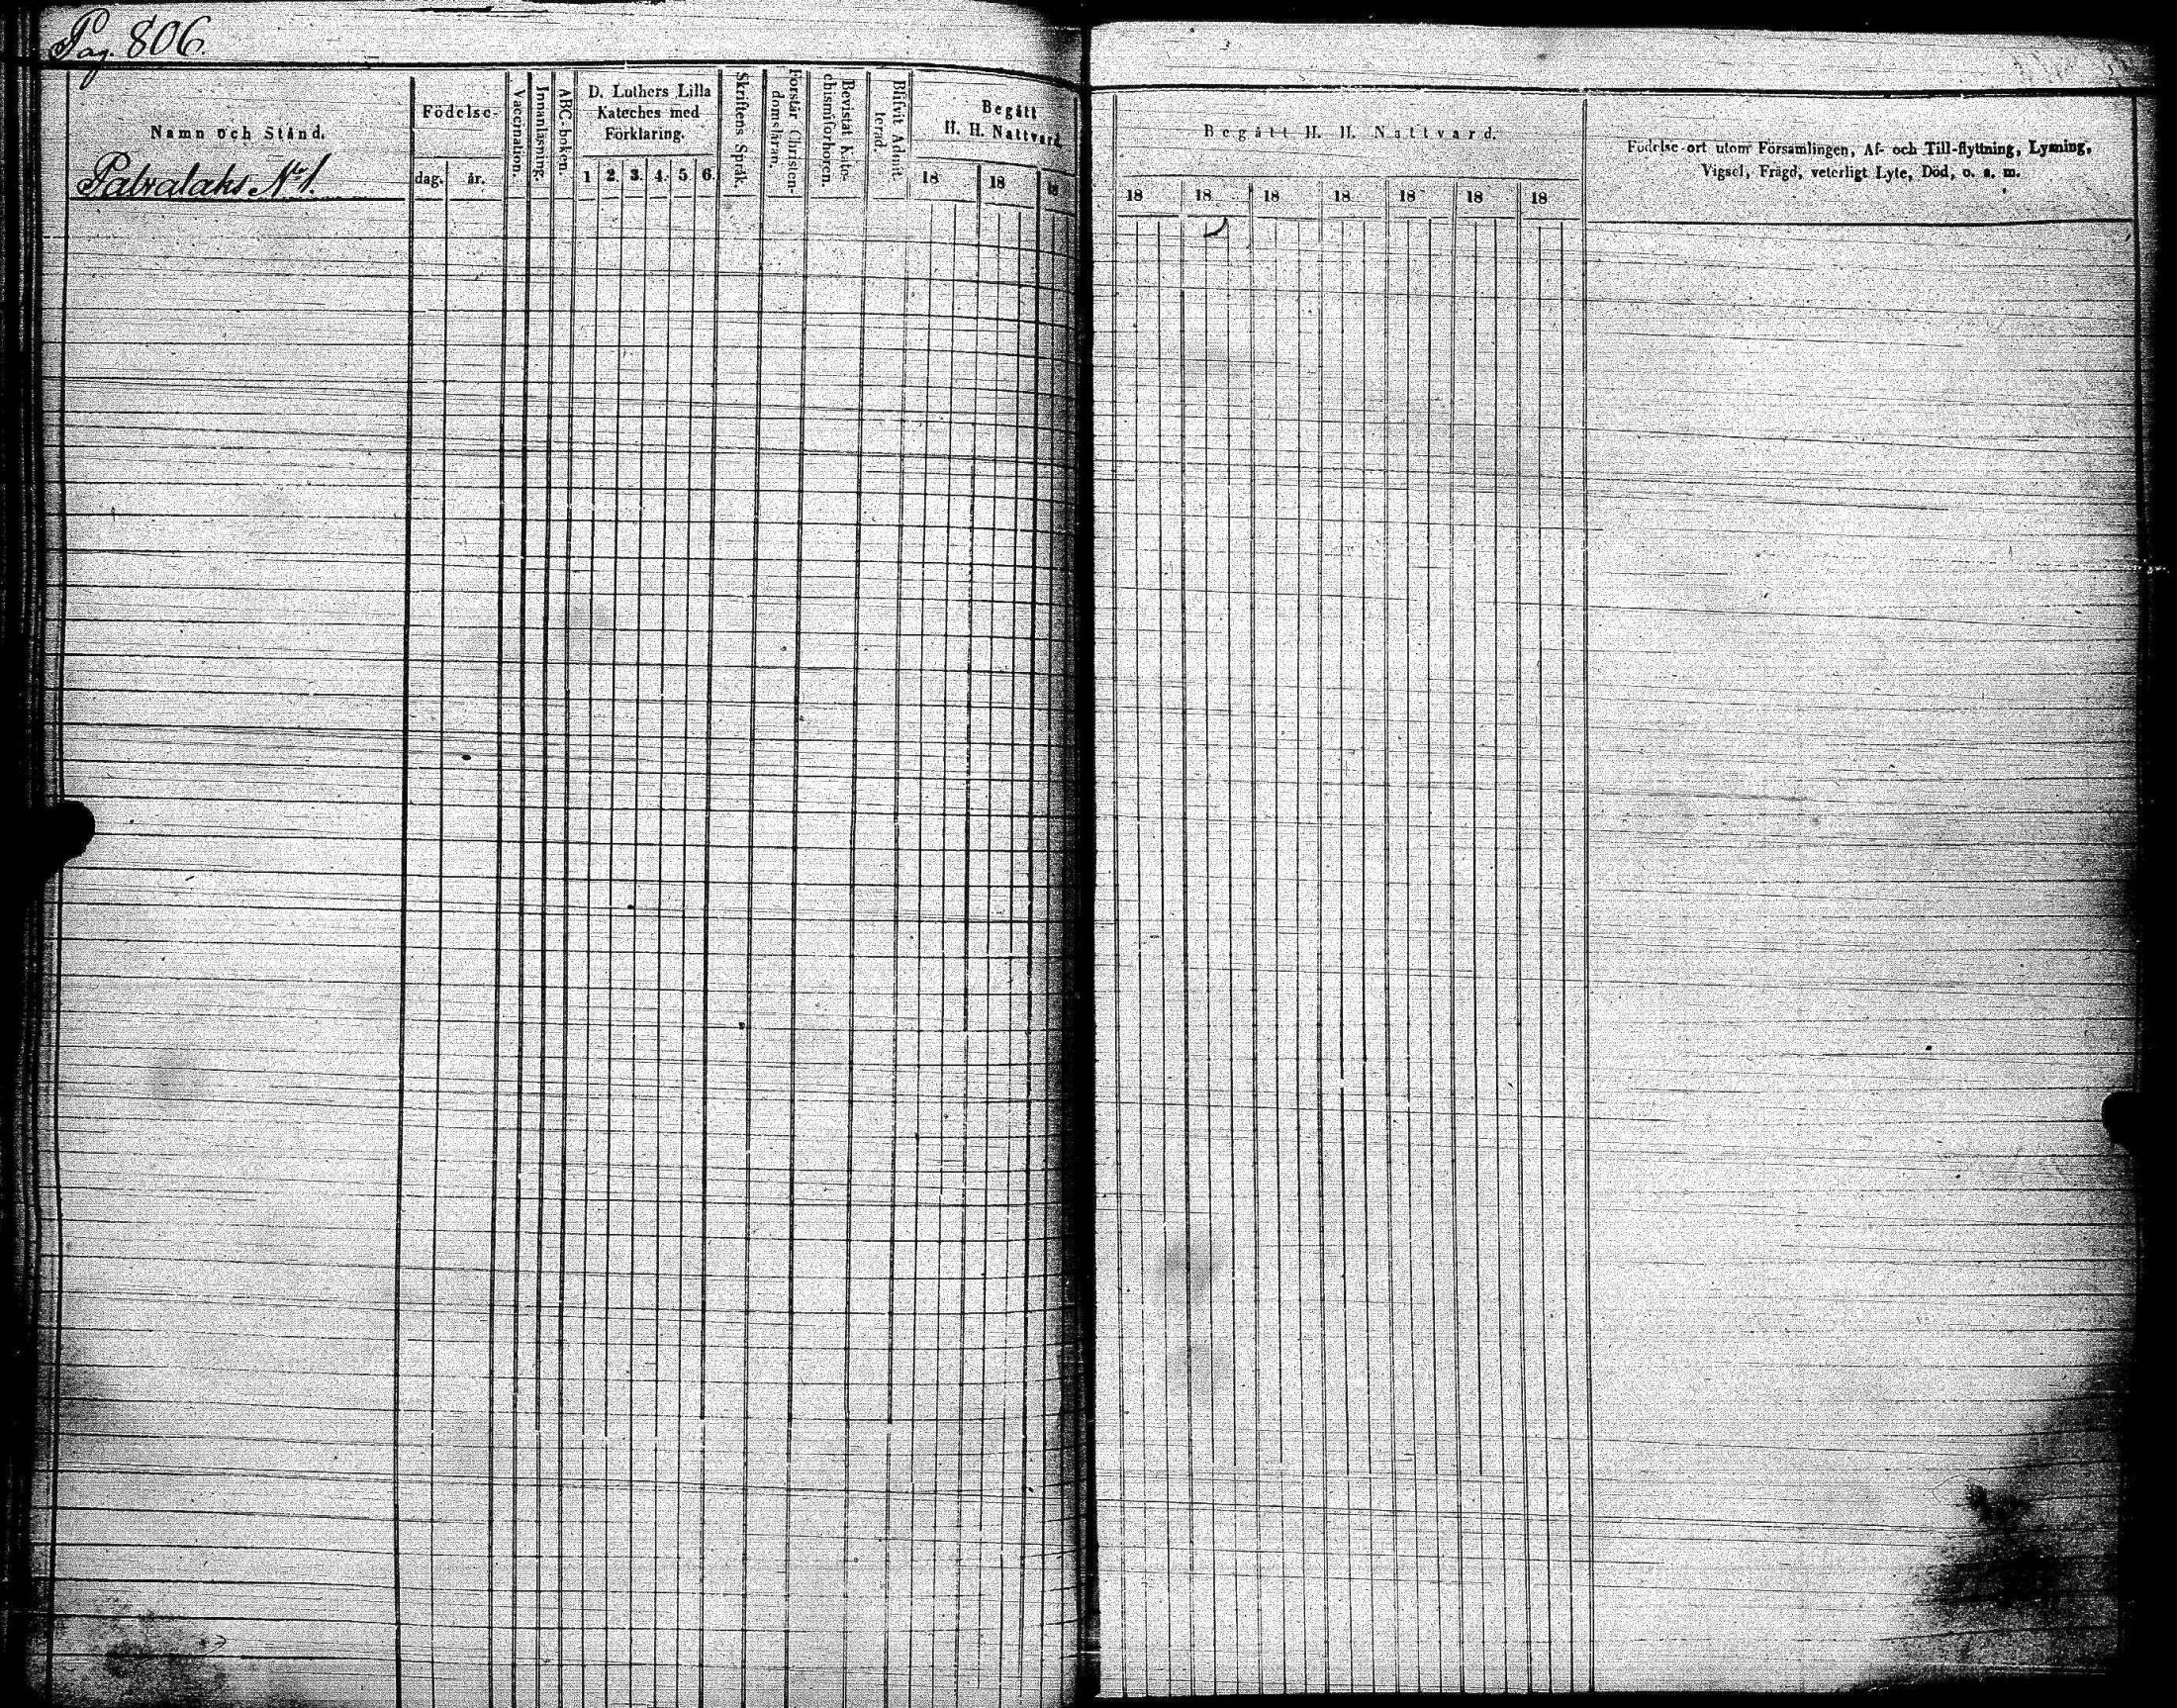 Pag. 806.
Namn och Stånd.
Födelse-
dag.
år.
Vaccination.
Innanläsning.
ABC-boken.
D. Luthers Lilla
Kateches med
Förklaring.
1 2. 3. 4. 5 6.
Skriftens Språk.
Förstår Christen-
domsläran.
Bevistat Kate-
chismiförhören.
Blifvit Admit-
terad.
Begått
H. H. Nattvard.
18 18 18
Begått H. H. Nattvard.
18 18 18 18 18 18 18
Födelse-ort utom Församlingen, Af- och Till-flyttning, Lysning,
Vigsel, Frägd, veterligt Lyte, Död, o. s. m.